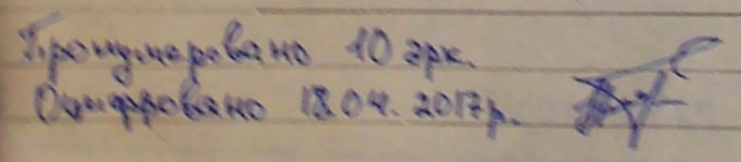 Пронумеровано 10 арк.
Оцифровано 18.04. 2017р.